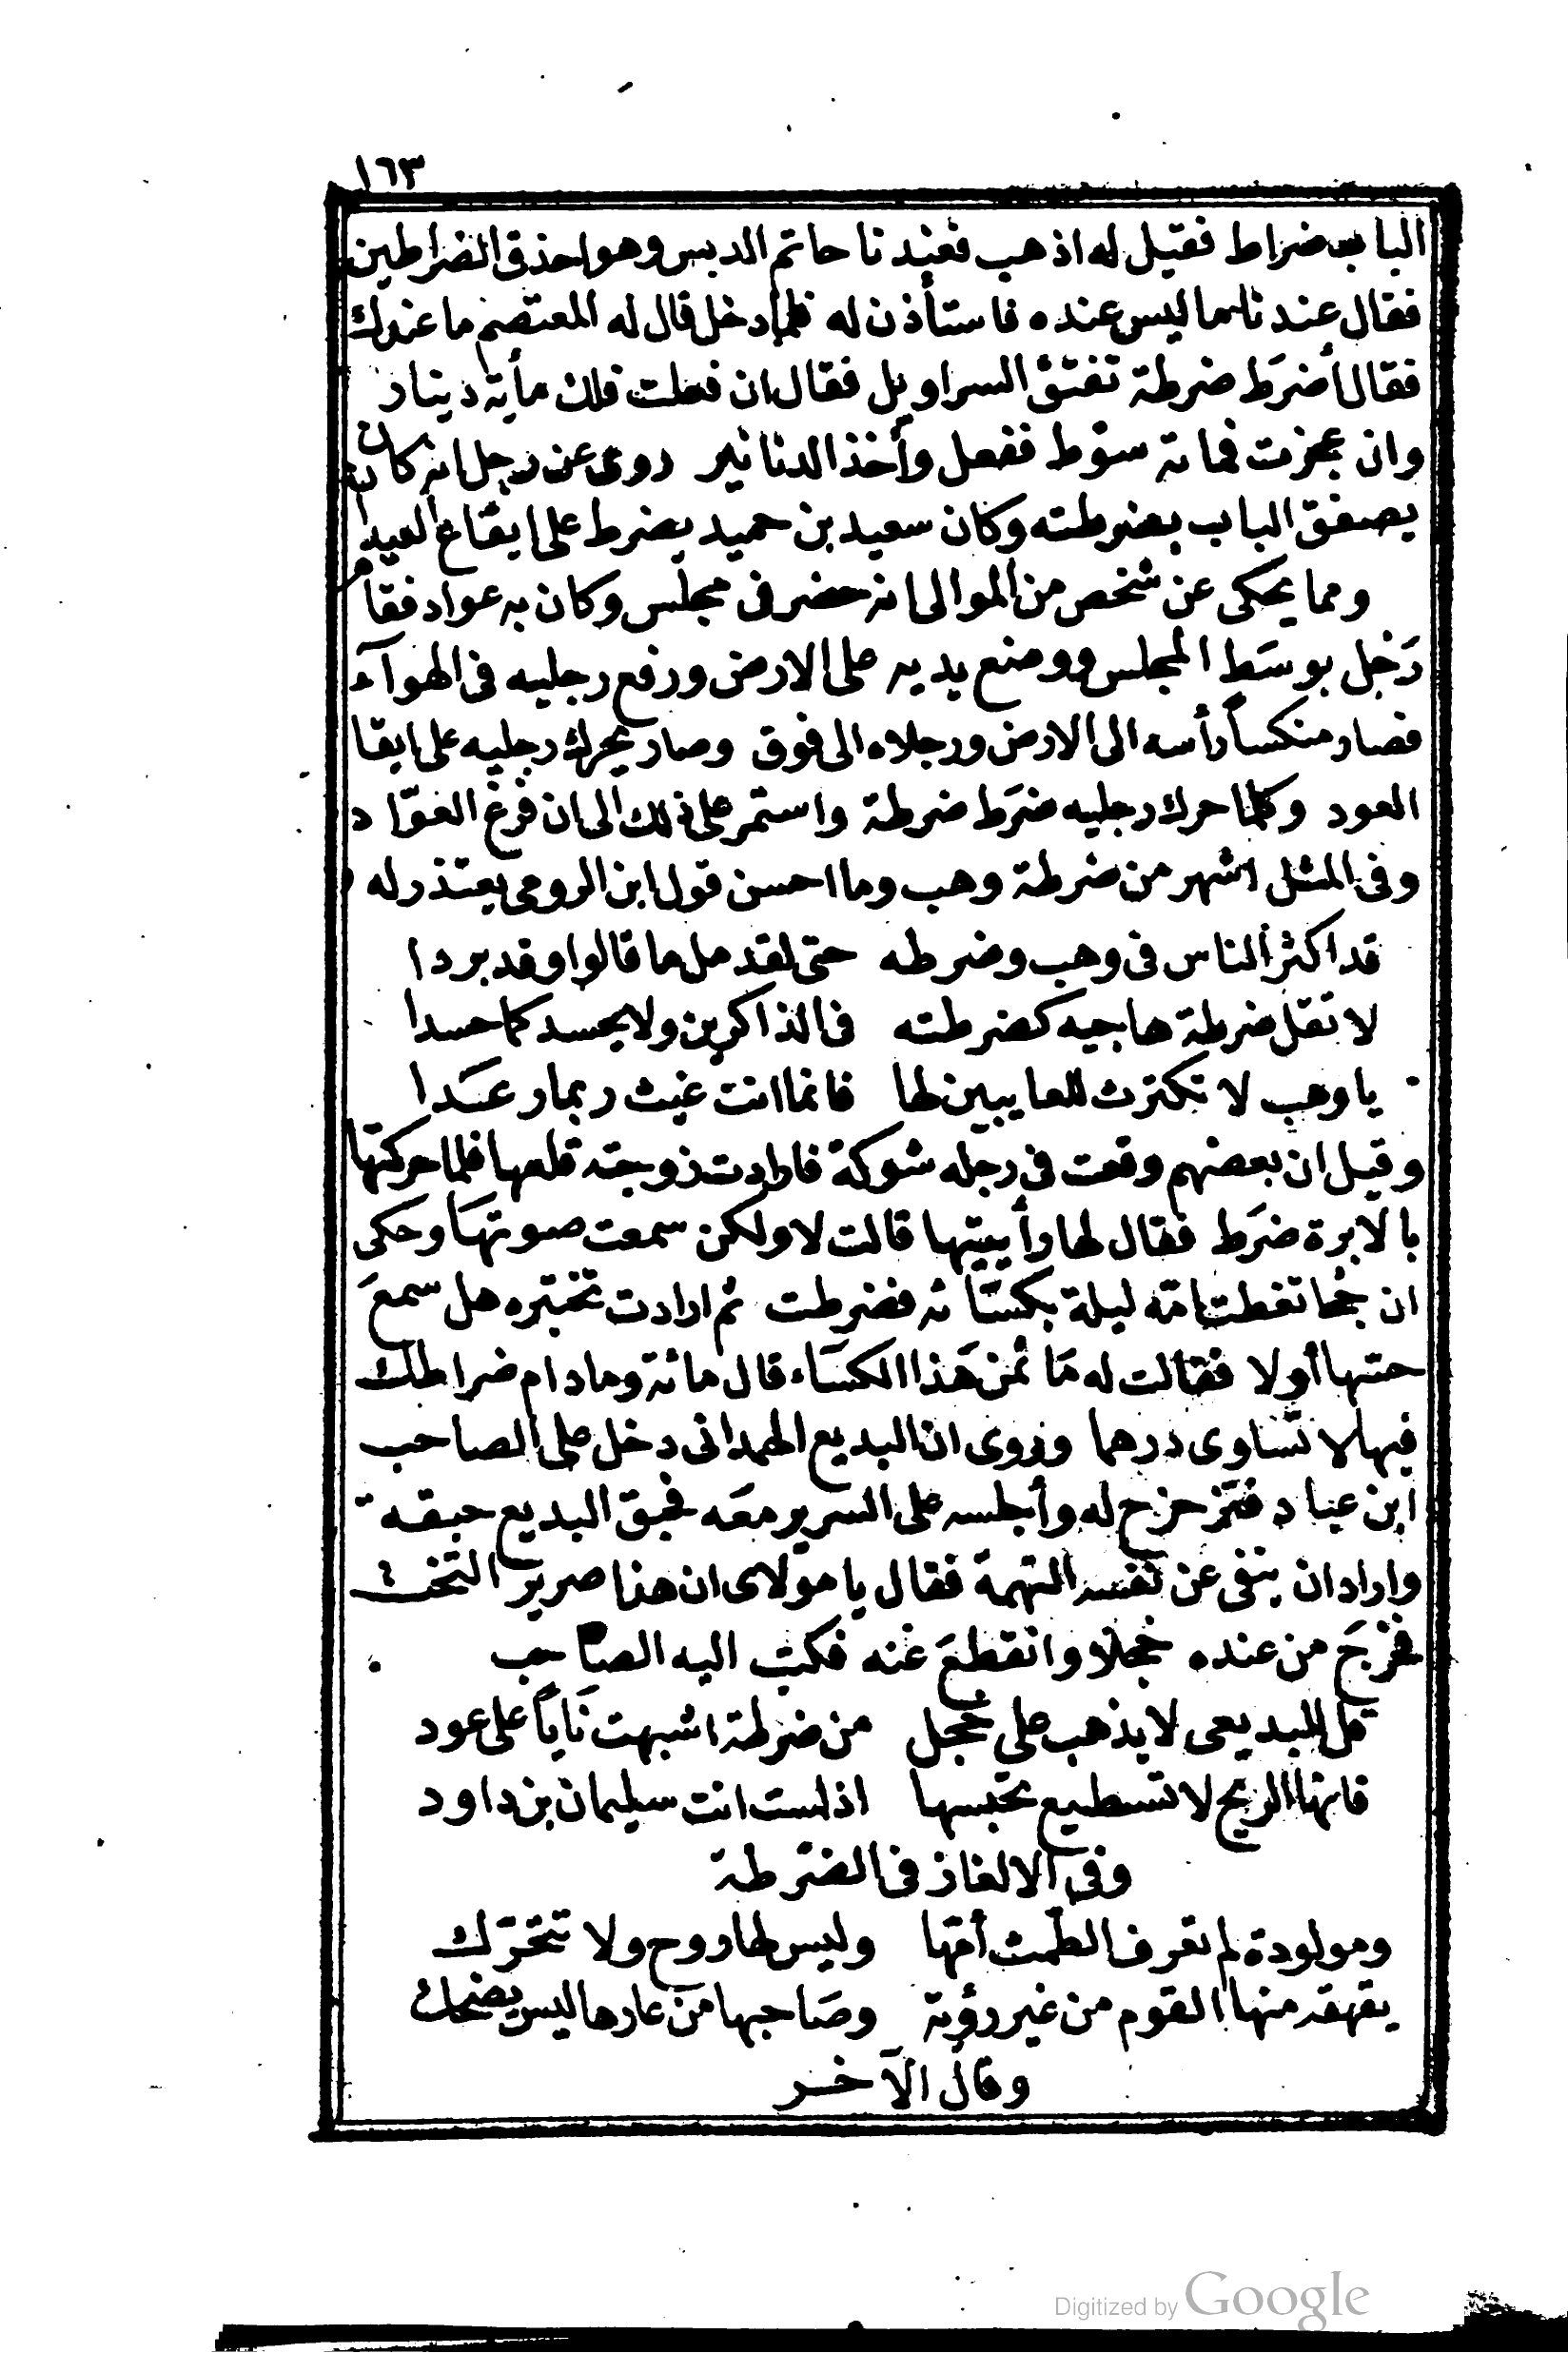 ١٦٣
الباب ضراط فقيل له اذهب فعندنا حاتم الدبس وهو احذق الضراطين
فقال عندنا ما ليس عنده فاستأذن له فلما دخل قال له المعتصم ما عندك
فقال أضرَط ضرطة تفتق السراويل فقال ان فعلت فلك مأية دينار
وان عجزت فمائة سوط ففعل وأخذ الدنانير روى عن رجل انه كان
يصفق الباب بضرطته وكان سعيد بن حميد يضرط على ايقاع العيدا
ومما يحكى عن شخص من الموالى انه حضر فى مجلس وكان به عواد فقام
رَجل بوسَط المجلس ووضع يديه على الارض ورفع رجليه فى الهوآء
فصار منكساً رأسه الى الارض ورجلاه الى فوق وصار يحرك رجليه على ايقا
العود وكلما حرك رجليه ضرَط ضرطة واستمر على ذلك الى ان فرغ العوّاد
وفى المثل اشهر من ضرطة وهب وما احسن قول ابن الرومى يعتذر له
قد اكثر الناس فى وهب وضرطه حتى لقد مل ما قالوا وقد بردا
لا تقل ضرطة هاجيه كضرطته فى الذاكرين ولا يحسد كما حسدا
يا وهب لا تكترث للعايبين لها فانما انت غيث ربما رعَدا
وقيل ان بعضهم وقعت فى رجله شوكة فارادت زوجته قلعها فلما حركتها
بالابرة ضرَط فقال لها رأيتيها قالت لا ولكن سمعت صوتهَا وحكى
ان جحا تغطت امّه ليلة بكسَائه فضرطت ثم ارادت تختبره هل سمعَ
حتتها أولا فقالت له مَا ثمن هَذا الكسَاء قال مائة وما دام ضراطك
فيها لا تساوى درهما وروى ان البديع الهمدانى دخل على الصاحب
ابن عباد فتزحزح له وأجلسه على السرير معَه فحبق البديع حبقة
واراد ان ينفى عن نفسه التهمة فقال يا مولاى ان هذا صرير التخت
فخرجَ من عنده خجلا وانقطعَ عنه فكتب اليه الصاحب
قل للبديعى لا يذهب على خجل من ضرطة اشبهت نَاياً على عود
فانها الريح لا تسطيع تحبسها اذ لست انت سليمان بن داود
وفى الالغاز فى الضرطة
ومولودة لم تعرف الطمث أمّها وليس لها روح ولا تتحرّك
يقهقه منها القوم من غير رؤية وصَاحبها من عارها ليس يضحك
وقال الآخر
Digitized by Google